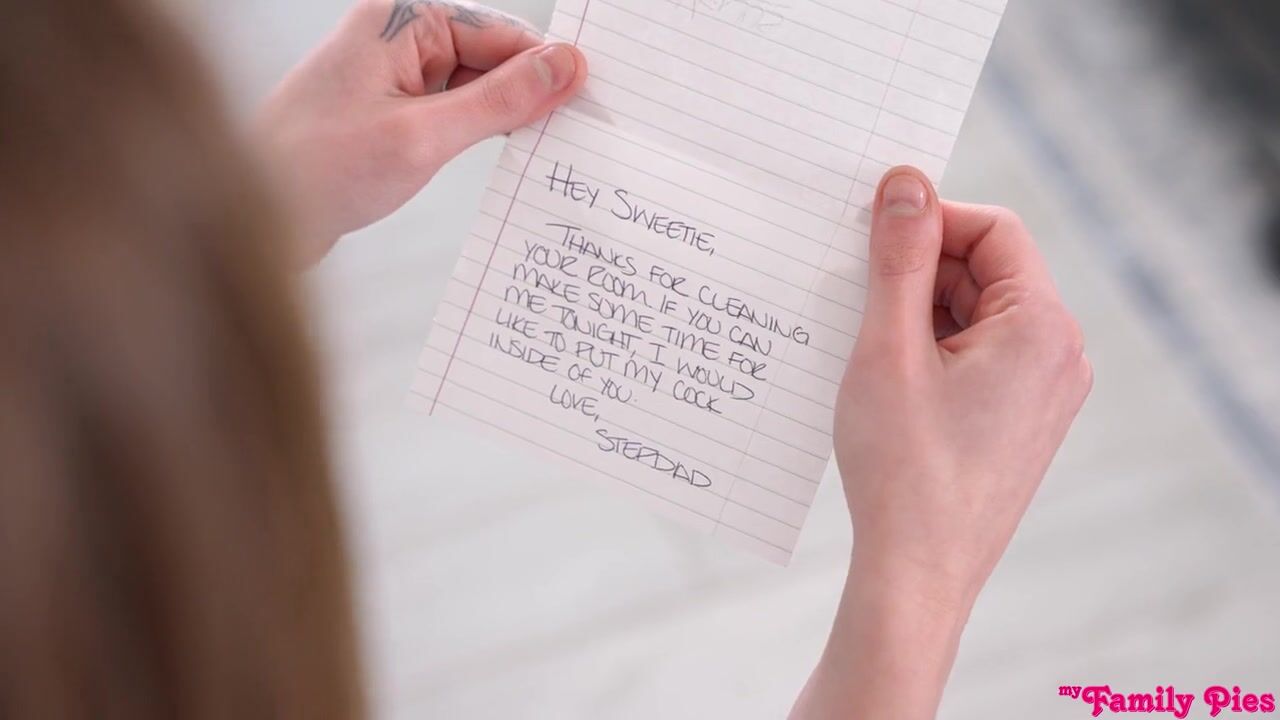 HEY SWEETIE,
THANKS FOR CLEANING
YOUR ROOM. IF YOU CAN
MAKE SOME TIME FOR
ME TONIGHT, I WOULD
LIKE TO PUT MY COCK
INSIDE OF YOU.
LOVE,
STEPDAD
my Family Pies